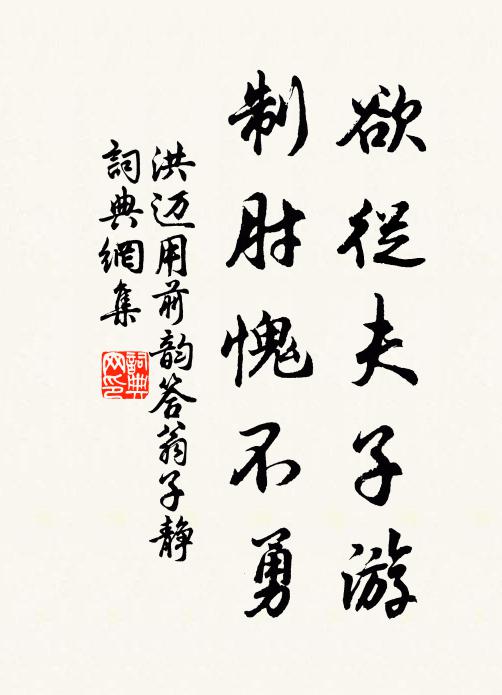 欲從夫子游
制肘愧不勇
洪迈用前韵答翁子静
詞典網集
詞典网印